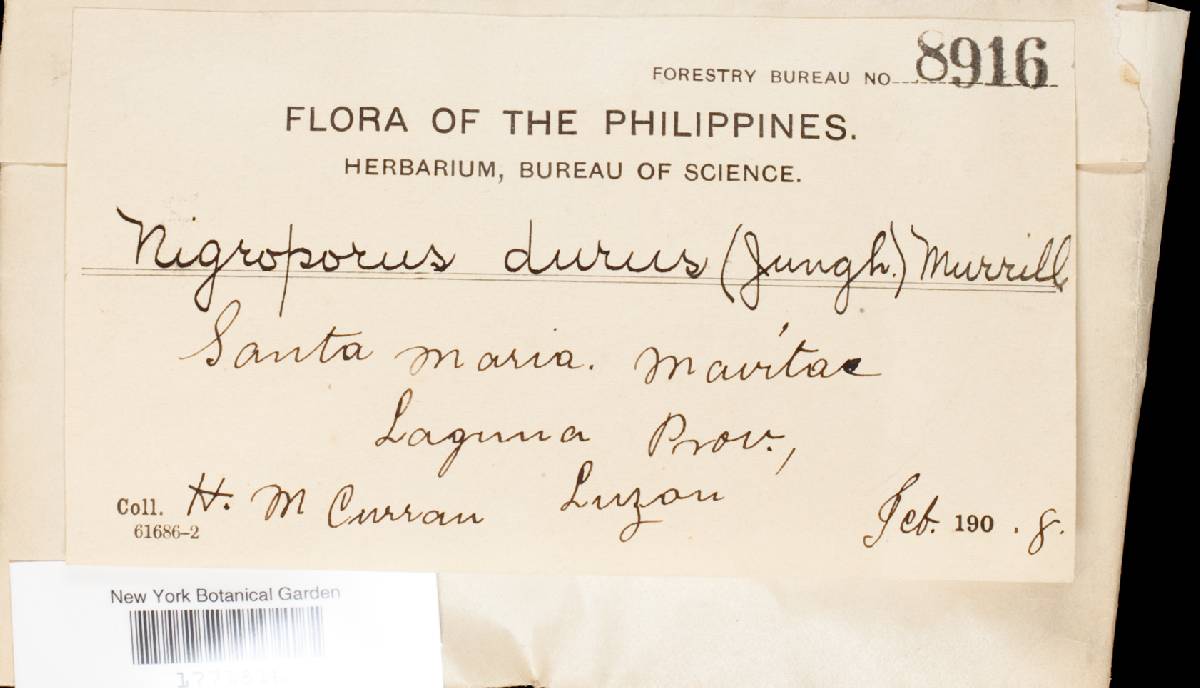 FORESTRY BUREAU NO 8916
FLORA OF THE PHILIPPINES.
HERBARIUM, BUREAU OF SCIENCE.
Nigroporus durus (Jungh.) Murrill
Santa Maria. Mavitac
Laguna Prov.,
Luzon
Coll. H. M Curran Feb. 190 . 8.
61686-2
New York Botanical Garden